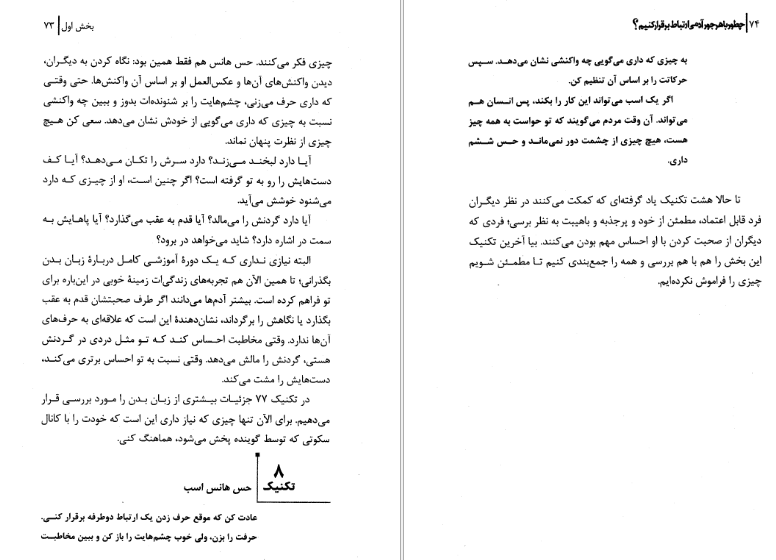 بخش اول | ۷۳
چیزی فکر می‌کنند. حس هانس هم فقط همین بود: نگاه کردن به دیگران،
دیدن واکنش‌های آن‌ها و عکس‌العمل او بر اساس آن واکنش‌ها. حتی وقتی
که داری حرف می‌زنی، چشم‌هایت را بر شنونده‌ات بدوز و ببین چه واکنشی
نسبت به چیزی که داری می‌گویی از خودش نشان می‌دهد. سعی کن هیچ
چیزی از نظرت پنهان نماند.
آیا دارد لبخند می‌زند؟ دارد سرش را تکان می‌دهد؟ آیا کف
دست‌هایش را رو به تو گرفته است؟ اگر چنین است، او از چیزی که دارد
می‌شنود خوشش می‌آید.
آیا دارد گردنش را می‌مالد؟ آیا قدم به عقب می‌گذارد؟ آیا پاهایش به
سمت در اشاره دارد؟ شاید می‌خواهد در برود؟
البته نیازی نداری که یک دورهٔ آموزشی کامل دربارهٔ زبان بدن
بگذرانی؛ تا همین الآن هم تجربه‌های زندگی‌ات زمینهٔ خوبی در این‌باره برای
تو فراهم کرده است. بیشتر آدم‌ها می‌دانند اگر طرف صحبتشان قدم به عقب
بگذارد یا نگاهش را برگرداند، نشان‌دهندهٔ این است که علاقه‌ای به حرف‌های
آن‌ها ندارد. وقتی مخاطبت احساس کند که تو مثل دردی در گردنش
هستی، گردنش را مالش می‌دهد. وقتی نسبت به تو احساس برتری می‌کند،
دست‌هایش را مشت می‌کند.
در تکنیک ۷۷ جزئیات بیشتری از زبان بدن را مورد بررسی قرار
می‌دهیم. برای الآن تنها چیزی که نیاز داری این است که خودت را با کانال
سکوتی که توسط گوینده پخش می‌شود، هماهنگ کنی.
۸
تکنیک حس هانس اسب
عادت کن که موقع حرف زدن یک ارتباط دوطرفه برقرار کنی.
حرفت را بزن، ولی خوب چشم‌هایت را باز کن و ببین مخاطبت
۷۴ | چطور با هر جور آدمی ارتباط برقرار کنیم؟
به چیزی که داری می‌گویی چه واکنشی نشان می‌دهد. سپس
حرکاتت را بر اساس آن تنظیم کن.
اگر یک اسب می‌تواند این کار را بکند، پس انسان هم
می‌تواند. آن وقت مردم می‌گویند که تو حواست به همه چیز
هست، هیچ چیزی از چشمت دور نمی‌ماند و حس ششم
داری.
تا حالا هشت تکنیک یاد گرفته‌ای که کمکت می‌کنند در نظر دیگران
فرد قابل اعتماد، مطمئن از خود و پرجذبه و باهیبت به نظر برسی؛ فردی که
دیگران از صحبت کردن با او احساس مهم بودن می‌کنند. بیا آخرین تکنیک
این بخش را هم با هم بررسی و همه را جمع‌بندی کنیم تا مطمئن شویم
چیزی را فراموش نکرده‌ایم.